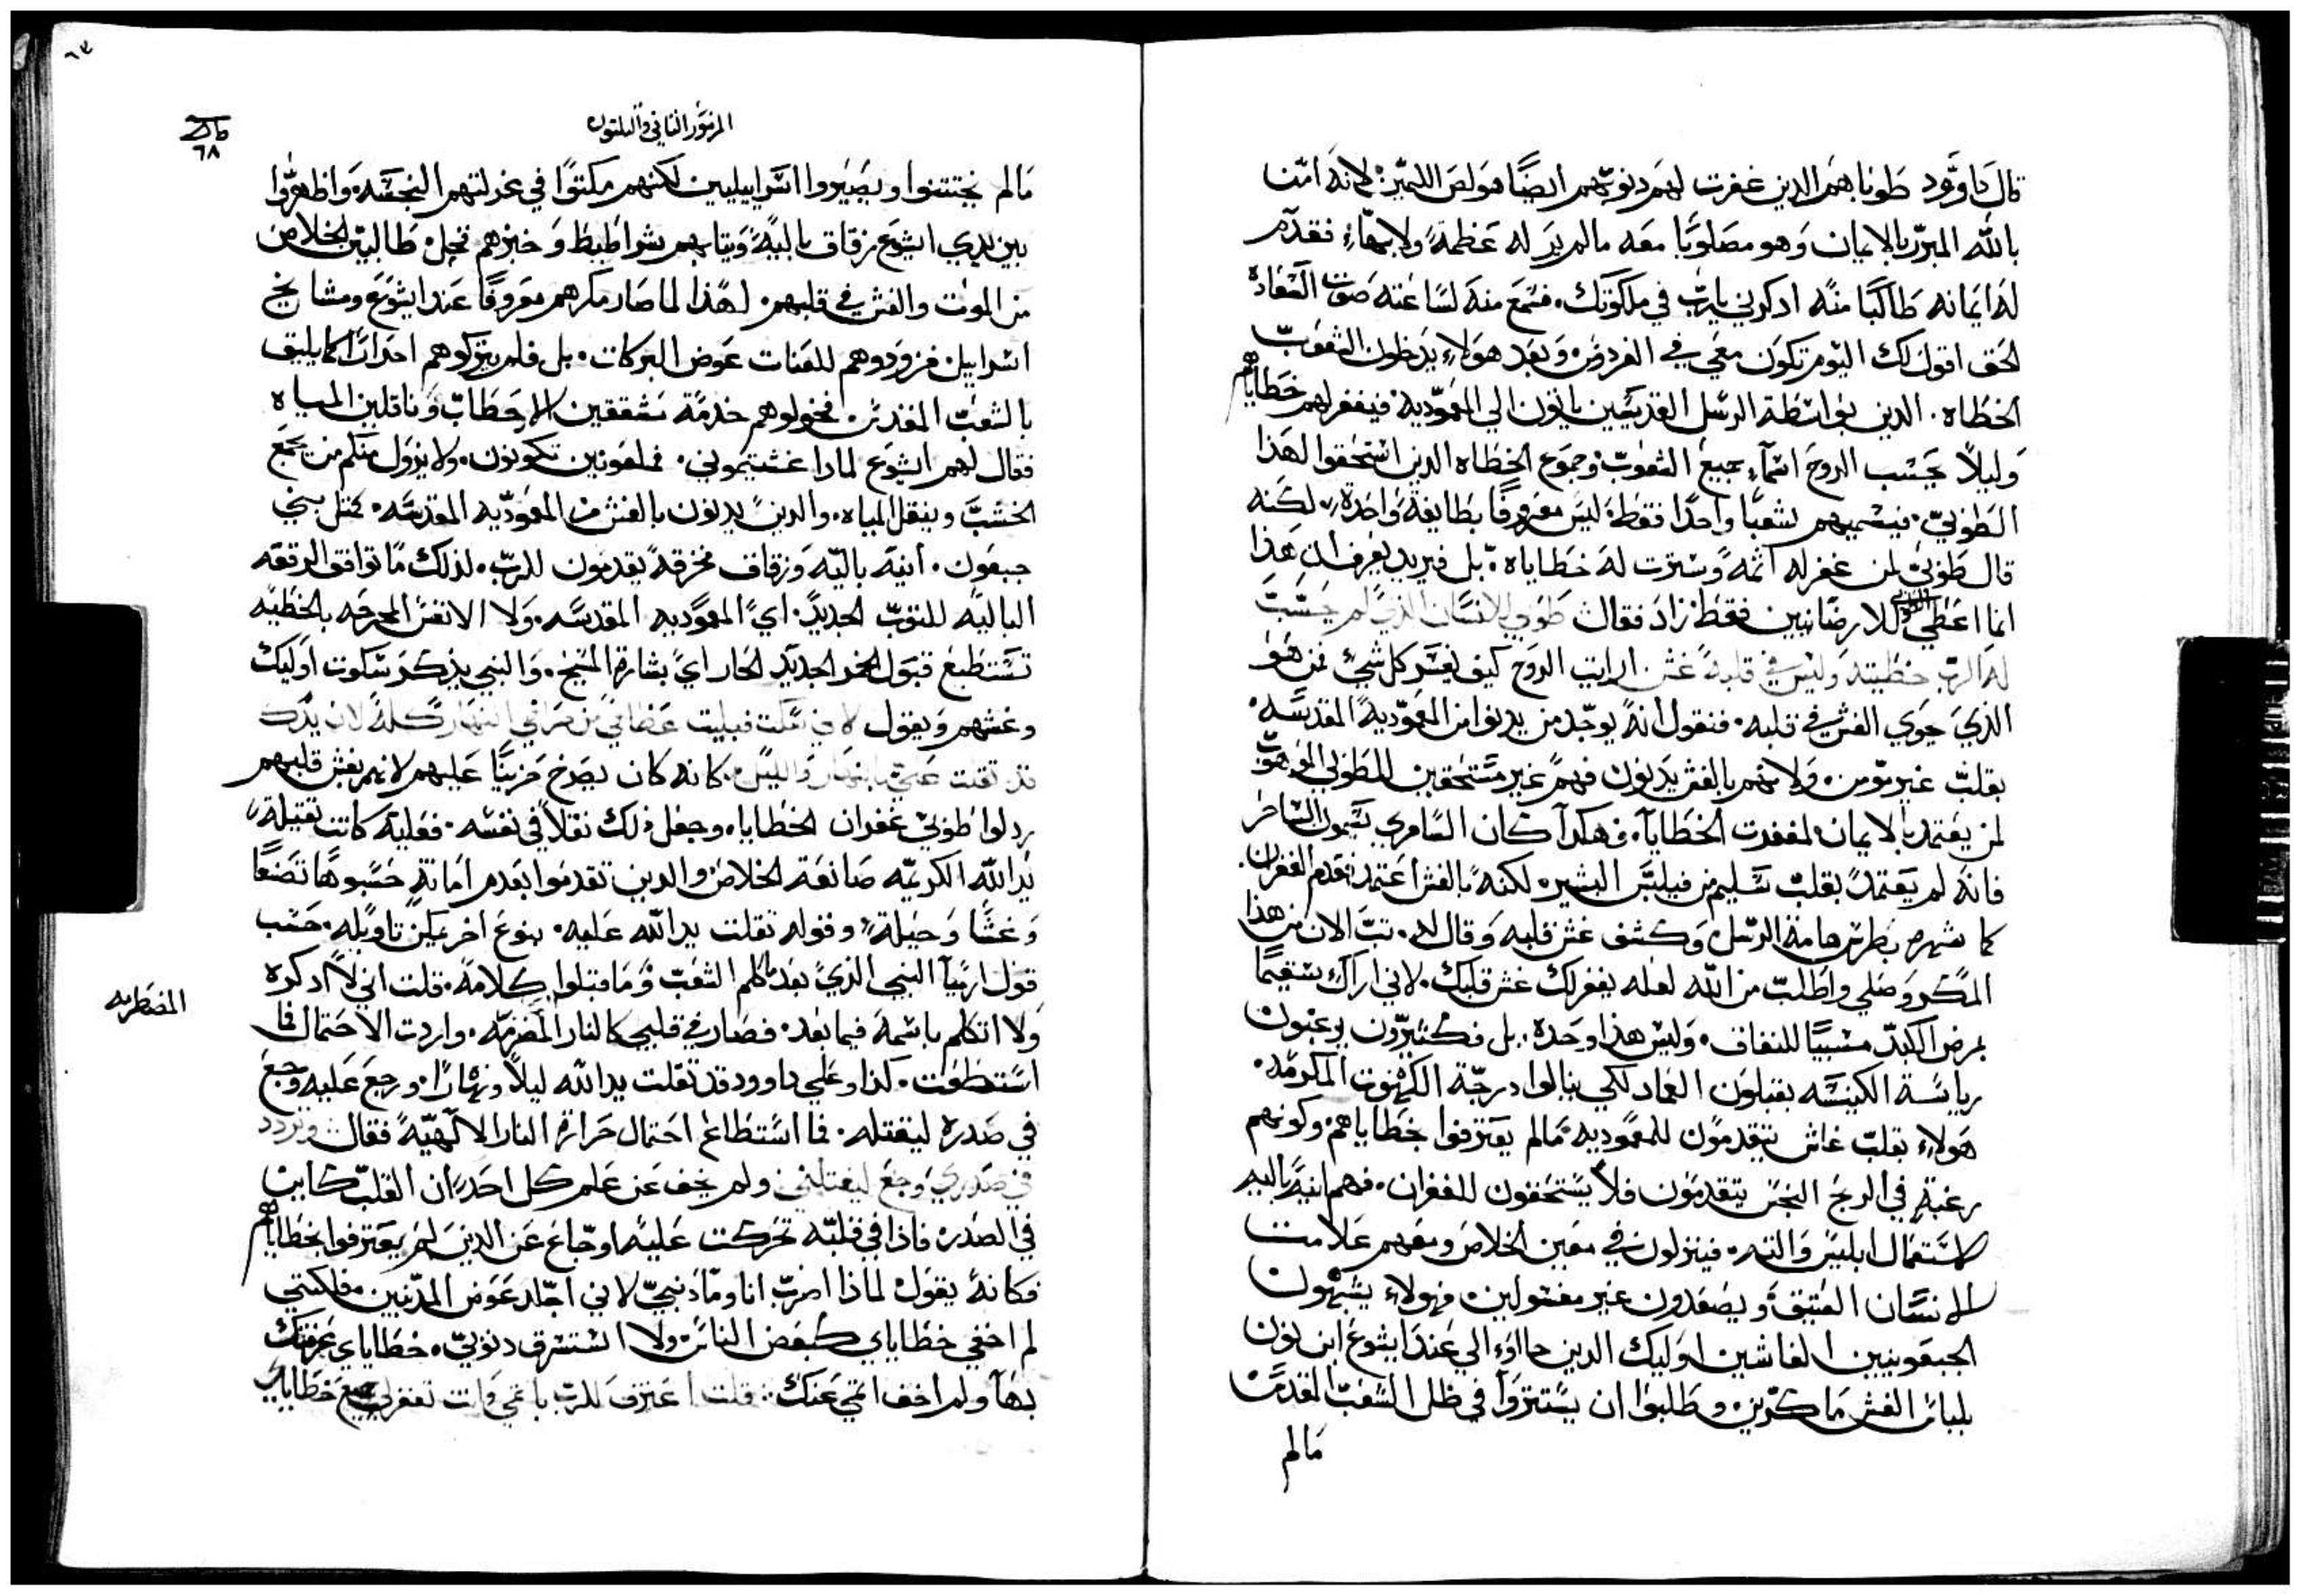 قال داوود طوباهم الدين غفرت لهم دنوبهم ايضًا هو لص اليمين لانه امن
بالله المبرر بالايمان وهو مصلوبا معه مالم ير له عظمة ولا بهاء فقدم
له ايمانه طالبًا منه ادكرني يارب في ملكوتك. فسمع منه لساعته صوت السعاده
الحق اقول لك اليوم تكون معي في الفردوس وبعد هولاء يدخلون الشعوب
الخطاه. الدين بواسطة الرسل القديسين ياتون الي المعمودية فيغفر لهم خطاياهم
وليلاً يحسب الروح اسماء جميع الشعوب وجموع الخطاه الدين استحقوا لهذا
الطوبي. فيسميهم شعبًا واحدًا فقط ليس معروفًا بطايفة واحدة لكنه
قال طوبي لمن غفر له اثمه وسترت له خطاياه. بل فيريد يعرف ان هذا
انما اعطي الطوبي للارضانيين فقط زاد فقال طوبي للانسان الذي لم يحسب
له الرب خطيته وليس في قلبه غش ارايت الروح كيف يفسر كل شيء فمن هو
الذي حوي الغش في قلبه. فنقول انه يوجد من يدنوا من المعمودية المقدسه
بقلب غير مومن ولانهم بالغش يدنون فهم غير مستحقين للطوبي الموهوب
لمن يعتمد بالايمان لمغفرت الخطايا. فهكدا كان السامري سيمون الساحر
فانه لم يعتمد بقلب سليم من فيلبس البشير لكنه بالغش اعتمد فعدم الغفران.
كما شهره بطرس هامة الرسل وكشف غش قلبه وقال له. تب الان من هذا
المكر وصلي واطلب من الله لعله يغفر لك غش قلبك. لاني اراك سقيمًا
بمرض الكبد مسببًا للنفاق. وليس هذا وحده. بل فكتيرون يرغبون
رياسة الكنيسه يقبلون العماد لكي ينالوا درجة الكهنوت المكرمه.
هولاء بقلب غاش يتقدمون للمعموديه مالم يعترفوا بخطاياهم وكونهم
رغبة في الربح النجس يتقدمون فلا يستحقون للغفران. فهم انية باليه
لاستعمال ابليس والته. فينزلون في معين الخلاص ومعهم علامت
الانسان العتيق ويصعدون غير مغسولين. فهولاء يشبهون
الجبعونيين الغاشين اوليك الدين جااوء الي عند ايشوع ابن نون
بلباس الغش ماكرين وطلبوا ان يستتروا في ظل الشعب المقدس
مالم
المزمور الثاني والثلثون
٦٨
مالم يختتنوا ويصيروا اسراييليين لكنهم مكتوا في عزلتهم النجسه واظهروا
بين يدي ايشوع زقاق بالية وتيابهم شراطيط وخبزهم طالبين الخلاص
من الموت والغش في قلبهم. لهذا لما صار مكرهم معروفًا عند ايشوع ومشايخ
اسراييل فزودوهم للعنات عوض البركات. بل فلم يتركوهم احرارًا كما يليق
بالشعب المقدس. فخولوهم خدمة مشققين الاحطاب وناقلين المياه
فقال لهم ايشوع لمادا غشيتموني. فملعونين تكونون. ولا يزول منكم من يجمع
الخشب وينقل المياه. والدين يدنون بالغش من المعموديه المقدسه. كمتل بني
جبعون. انية باليه وزقاق مخرقة يقدمون للرب. لذلك ما توافق الرقعه
الباليه للتوب الجديد. اي المعموديه المقدسه. ولا الانفس المجرحه بالخطيه
تستطيع قبول الخمر الجديد الحار اي بشارة المسيح. والنبي يذكر سكوت اوليك
وغشهم ويقول لاني سكت فبليت عظامي من صراخي النهار كله لان يدك
قد تقلت علي بالنهار والليل. كانه كان يصرخ حزينًا عليهم لانهم بغش قلبهم
ردلوا طوبي غفران الخطايا. وجعل ذلك تقلاً في نفسه. فعليه كانت تقيله
يد الله الكريمه صانعة الخلاص والدين تقدموا بعدم امانة حسبوها تصنعًا
وغشًا وحيلة وقوله تقلت يد الله عليه. بنوع اخر يمكن تاويله. حسب
قول ارميا النبي الذي بعد ما كلم الشعب وما قبلوا كلامه. قلت اني لا ادكره
ولا اتكلم باسمه فيما بعد. فصار في قلبي كالنار المضرمه. واردت الاحتمال فما
المضطرمه
استطعت. كذا وعلي داوود قد تقلت يد الله ليلاً ونهارًا. ورجع عليه وجع
في صدره ليقتله. فما استطاع احتمال حرارة النار الالهية فقال وتردد
في صدري وجع ليقتلني ولم يخف عن علم كل احد ان القلب كاين
في الصدر فاذا في قلبه تحركت عليه اوجاع عن الذين لم يعترفوا بخطاياهم
فكانه يقول لماذا اضرب انا وما دنبي لاني اجلد عوض المدنبين فلكنني
لم اخفي خطاياي كبعض الناس ولا استسرق دنوبي. خطاياي عرفتك
بها ولم اخف اتمي عنك قلت اعترف للرب باتمي وانت تغفر لي جميع خطاياي